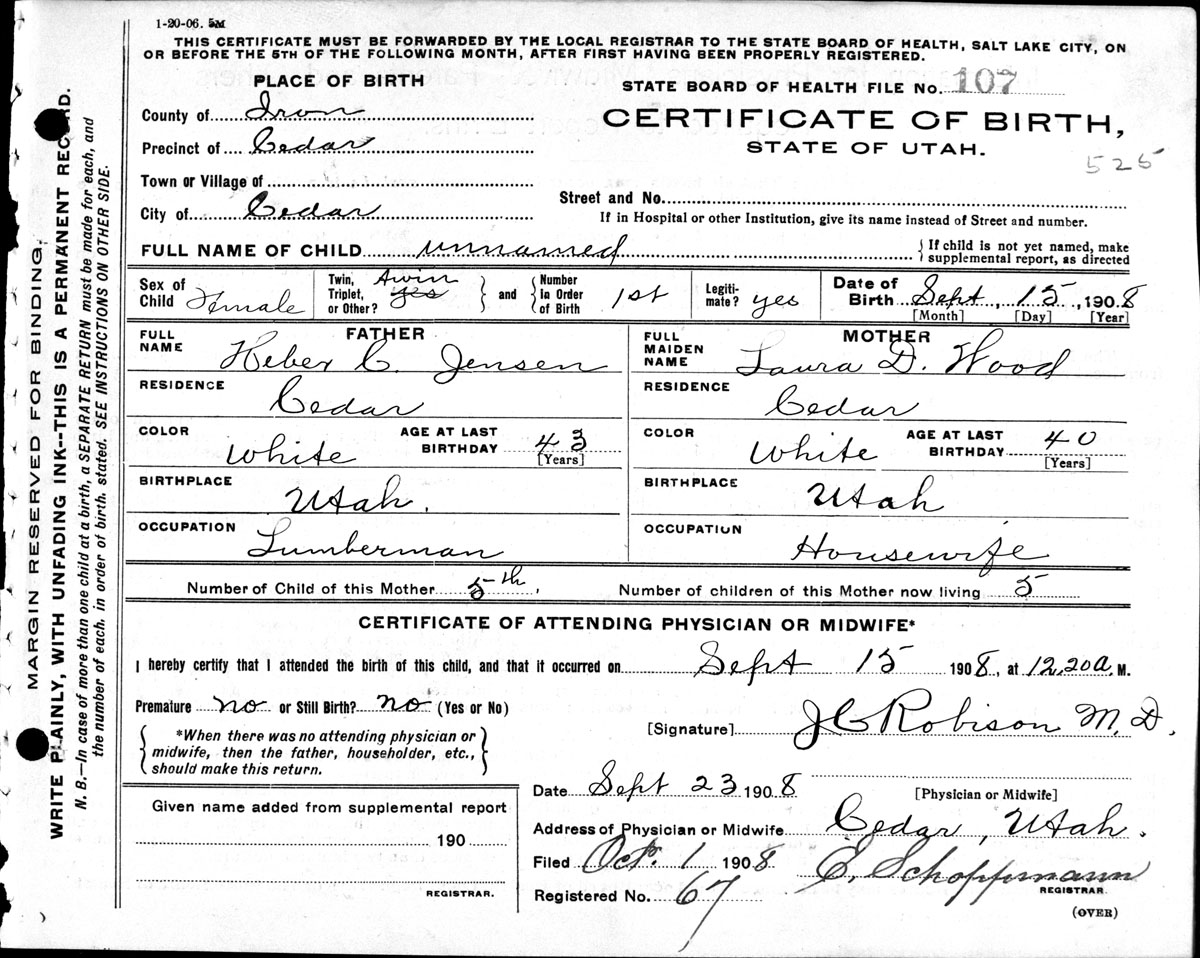 1-20-06. 5M
THIS CERTIFICATE MUST BE FORWARDED BY THE LOCAL REGISTRAR TO THE STATE BOARD OF HEALTH, SALT LAKE CITY, ON
OR BEFORE THE 5TH OF THE FOLLOWING MONTH, AFTER FIRST HAVING BEEN PROPERLY REGISTERED.
PLACE OF BIRTH
STATE BOARD OF HEALTH FILE No. 107
County of Iron
CERTIFICATE OF BIRTH,
Precinct of Cedar
STATE OF UTAH.
525
Town or Village of
Street and No.
City of Cedar
If in Hospital or other Institution, give its name instead of Street and number.
FULL NAME OF CHILD unnamed { If child is not yet named, make supplemental report, as directed
Sex of Child Female
Twin, Triplet, or Other? Twin yes } and { Number In Order of Birth 1st
Legiti-mate? yes
Date of Birth Sept, 15, 1908
[Month] [Day] [Year]
FATHER
FULL NAME Heber C. Jensen
MOTHER
FULL MAIDEN NAME Laura D. Wood
RESIDENCE Cedar
RESIDENCE Cedar
COLOR White AGE AT LAST BIRTHDAY 43 [Years]
COLOR White AGE AT LAST BIRTHDAY 40 [Years]
BIRTHPLACE Utah.
BIRTHPLACE Utah
OCCUPATION Lumberman
OCCUPATION Housewife
Number of Child of this Mother 5th. Number of children of this Mother now living 5
CERTIFICATE OF ATTENDING PHYSICIAN OR MIDWIFE*
I hereby certify that I attended the birth of this child, and that it occurred on Sept 15 1908, at 12,20 a. M.
Premature no or Still Birth? no (Yes or No)
[Signature] J C Robison M. D.
{ *When there was no attending physician or
midwife, then the father, householder, etc.,
should make this return. }
Date Sept 23 1908
[Physician or Midwife]
Given name added from supplemental report
190
REGISTRAR.
Address of Physician or Midwife Cedar, Utah.
Filed Oct. 1 1908 E. Schoppmann
REGISTRAR.
Registered No. 67
(OVER)
MARGIN RESERVED FOR BINDING.
WRITE PLAINLY, WITH UNFADING INK--THIS IS A PERMANENT RECORD.
N. B.—In case of more than one child at a birth, a SEPARATE RETURN must be made for each, and
the number of each, in order of birth, stated. SEE INSTRUCTIONS ON OTHER SIDE.